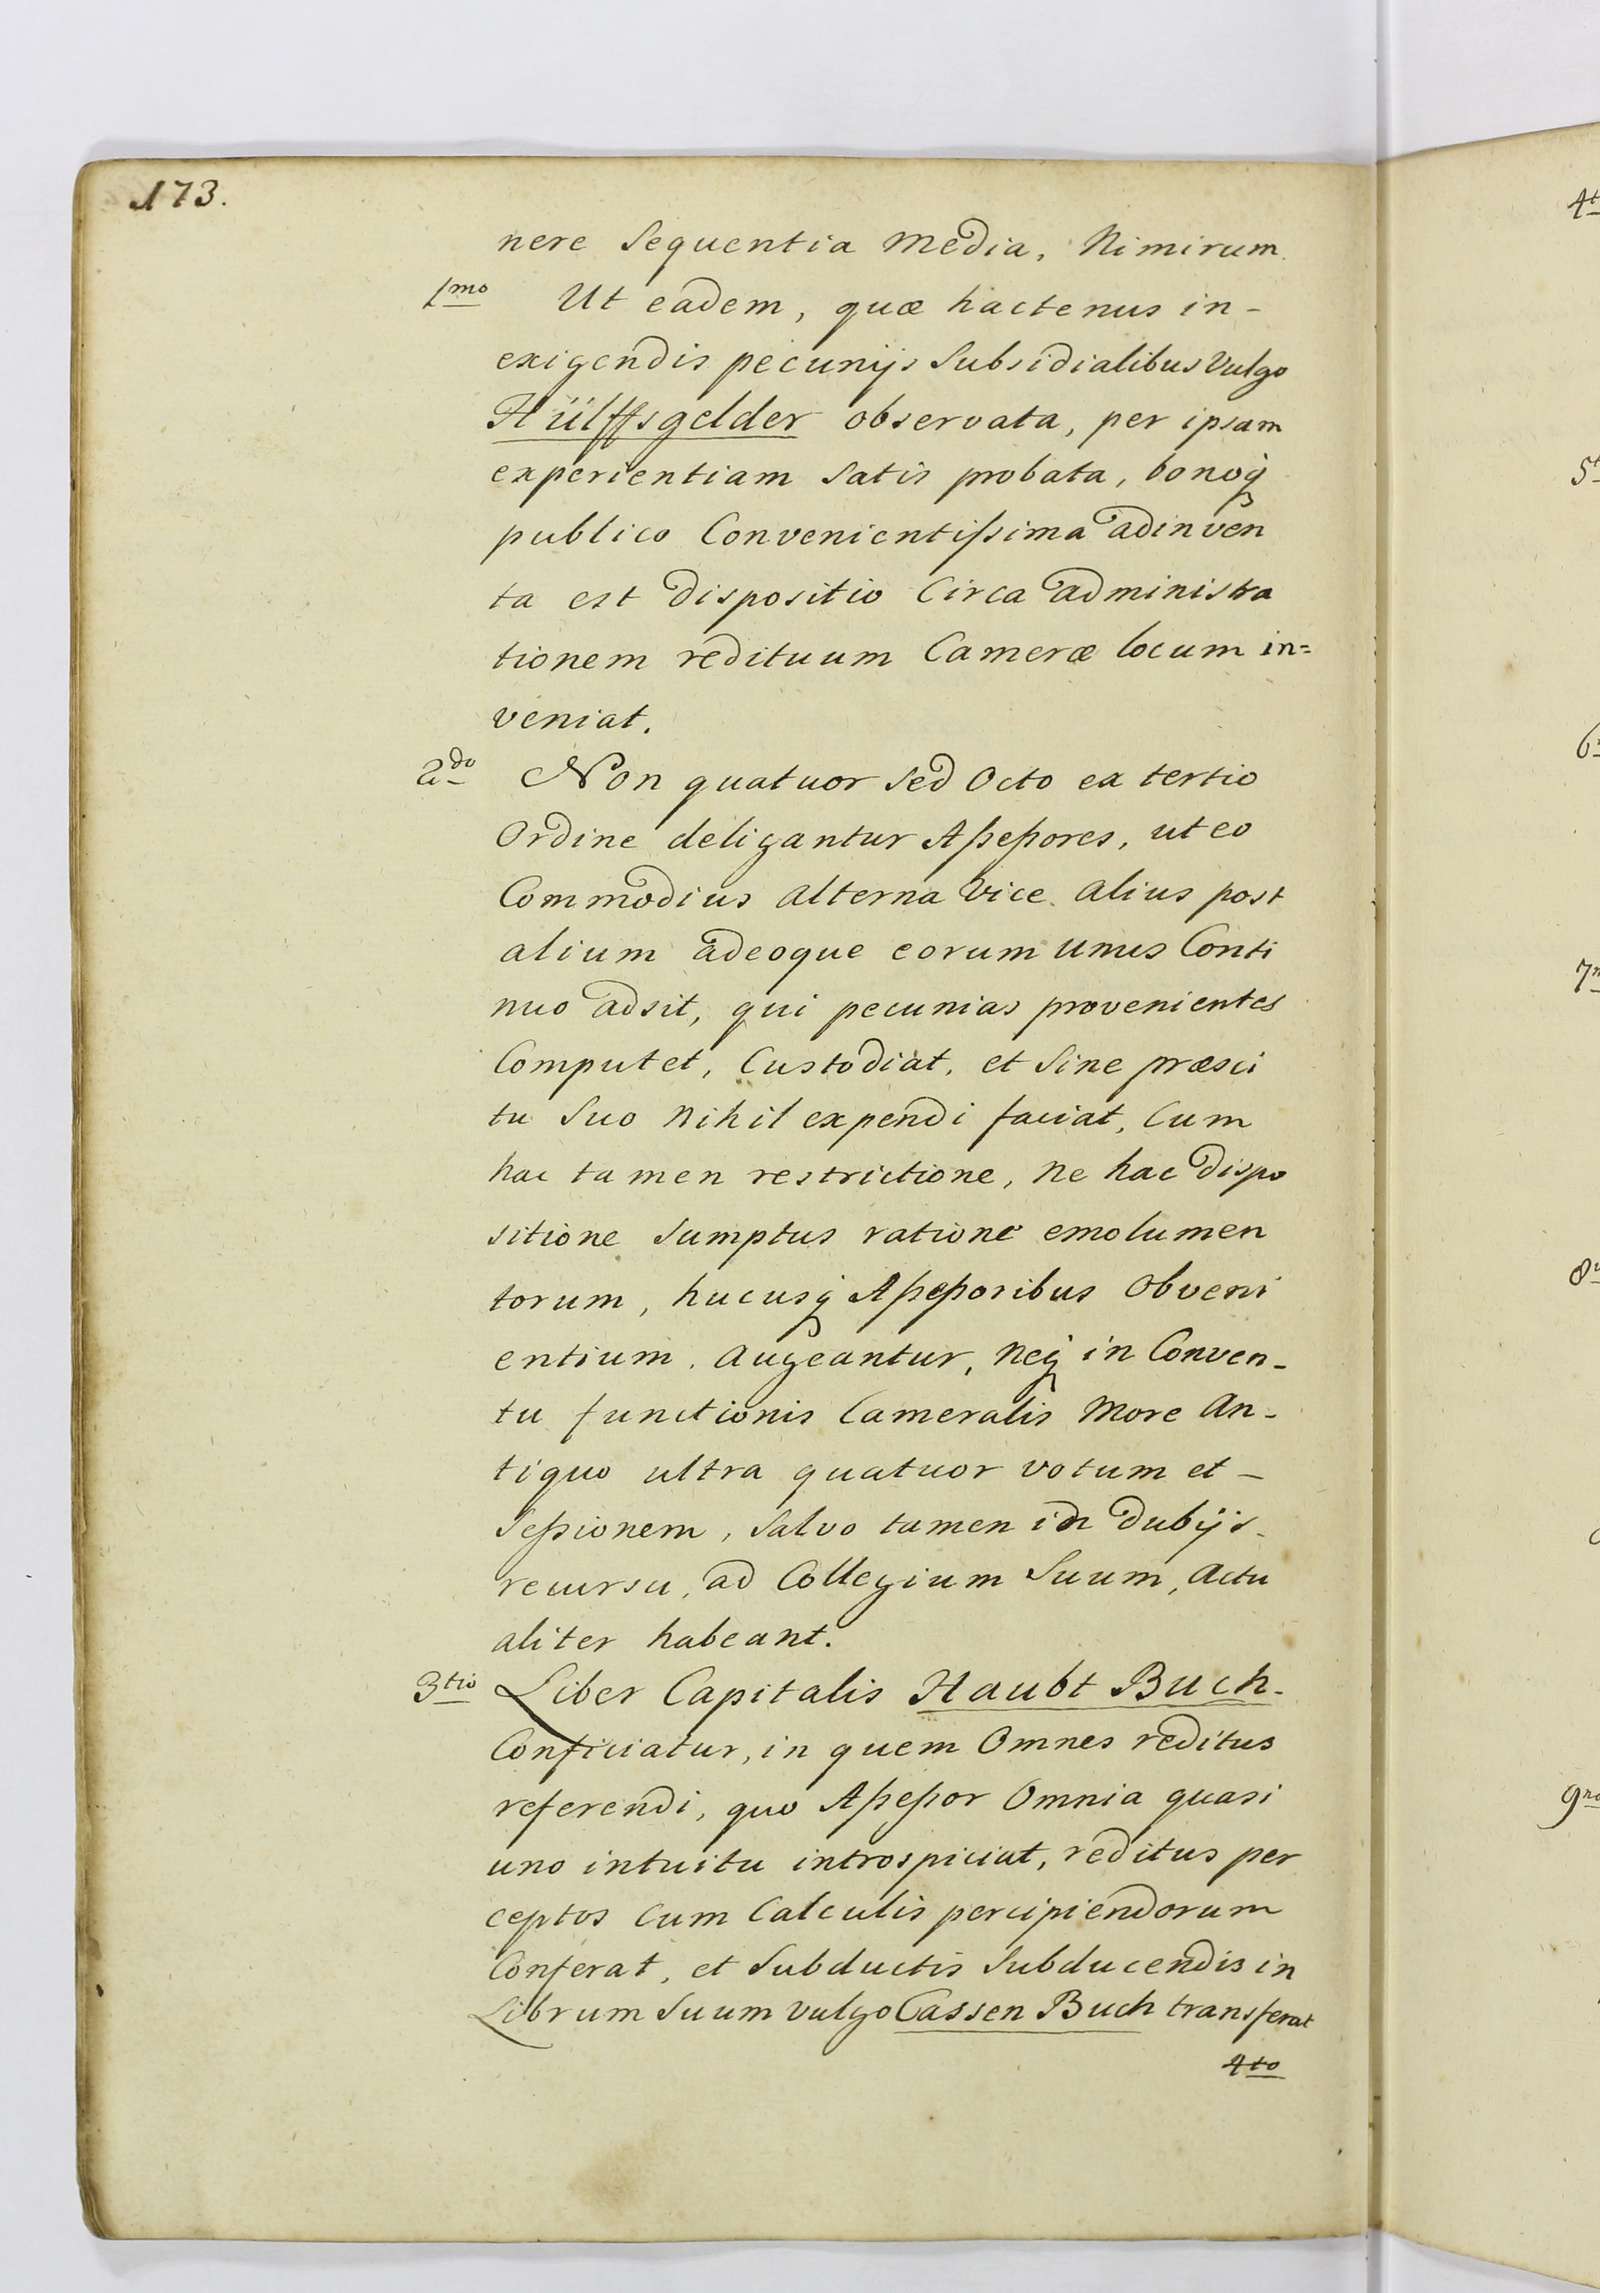 173.
nere Sequentia Media, Nimirum
1mo Ut eadem, quæ hactenus in-
exigendis pecunijs Subsidialibus Vulgo
Hülffsgelder observata, per ipsam
experientiam Satis probata, bonoq́
publico Convenientißima adinven
ta est dispositio Circa administra
tionem redituum Cameræ locum in=
veniat.
2do Non quatuor Sed Octo ex tertio
Ordine deligantur Aßeßores, ut eo
Commodius alterna Vice alius post
alium adeoque eorum unus Conti
nuo adsit, qui pecunias provenientes
Computet, Custodiat, et Sine præsci
tu Suo Nihil expendi faciat, Cum
hac tamen restrictione, Ne hac dispo
sitione Sumptus ratione emolumen
torum, hucusq́ Aßeßoribus Obveni
entium. Augeantur, Neq́ in Conven-
tu functionis Cameralis More An-
tiquo ultra quatuor votum et -
Seßionem, Salvo tamen in dubijs-
recursu, ad Collegium Suum, Actu
aliter habeant.
3tio Liber Capitalis Haubt Buch-
Conficiatur, in quem Omnes reditus
referendi, quo Aßeßor Omnia quasi
uno intuitu introspiciat, reditus per
ceptos Cum Calculis percipiendorum
Conferat, et Subductis Subducendis in
Librum Suum Vulgo Cassen Buch transferat
4to
4t
5t
6
7m
8v
9no